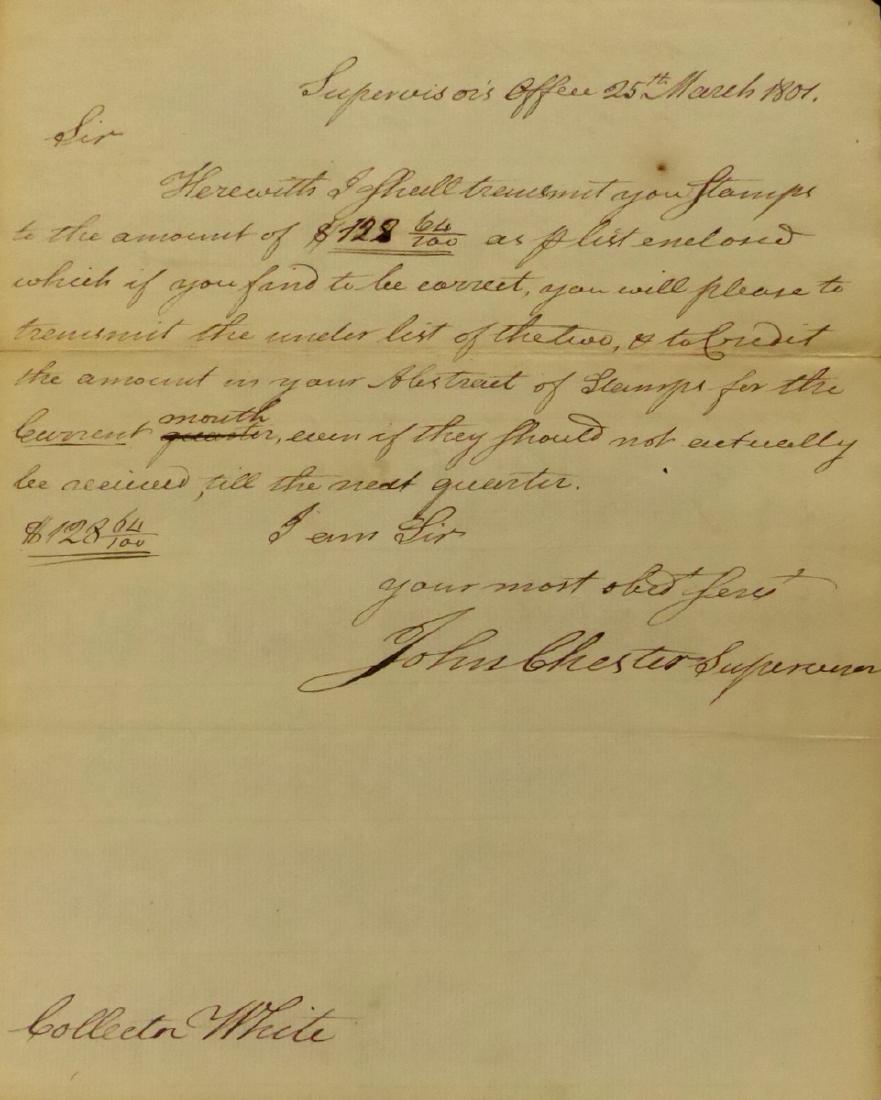 Supervisor's Office 25th March 1801.
Sir
Herewith I shall transmit you Stamps
to the amount of $128 64/100 as ⅌ list enclosed
which if you find to be correct, you will please to
transmit the under list of the two, & to Credit
the amount in your Abstract of Stamps for the
Current quarter month, even if they should not actually
be received, till the next quarter.
$128 64/100 I am Sir
your most obedt Servt
John Chester Supervisor
Collector White